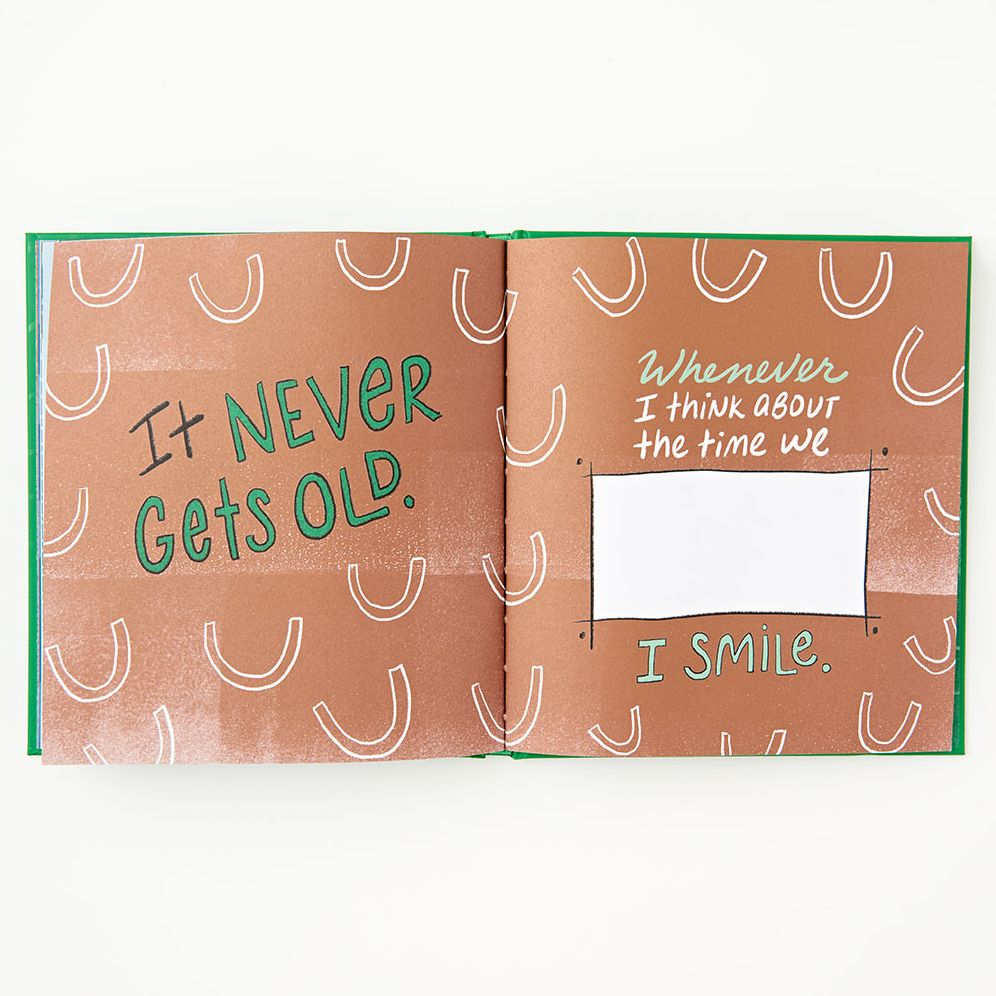 It NEVER
Gets OLD.
Whenever
I think ABOUT
the time we
I SMiLe.